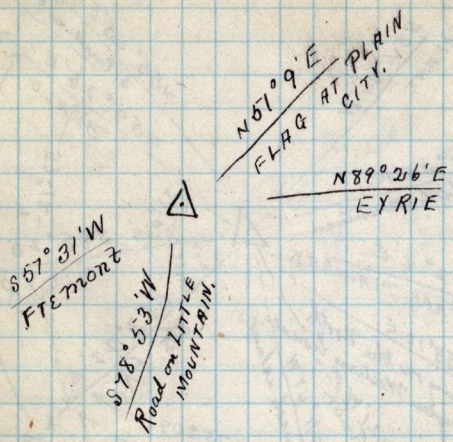 N51° 9' E
FLAG AT PLAIN
CITY.
N89° 26' E
EYRIE
S57° 31' W
FrEmonT
S78° 53' W
Road on LITTLE
MOUNTAIN.